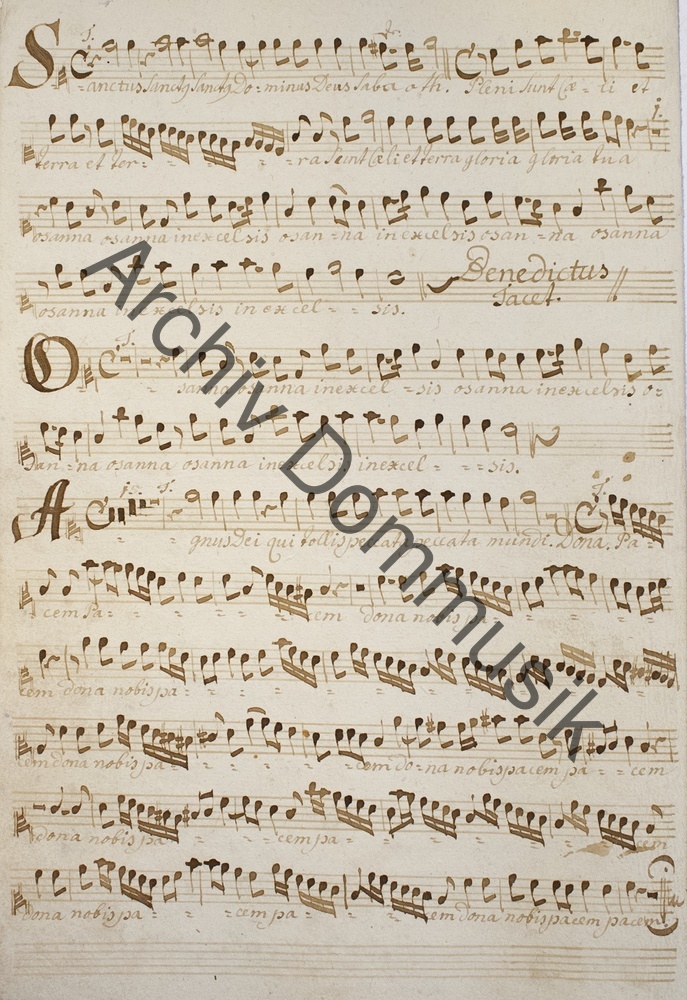 Sanctus Sanct9 Sanct9 Do - minus Deus Saba oth. Pleni Sunt Cæ - li et
terra et ter - - - ra Sunt Cæli et terra gloria gloria tua
osanna osanna in excelsis osan - na in excelsis osan - na osanna
Benedictus
Tacet.
osanna in excelsis in excel - - sis.
O - - sanna osanna in excel - sis osanna in excelsis o -
san - na osanna osanna in excelsis in excel - - - sis.
A - - gnus Dei qui tollis peccata peccata mundi. Dona. Pa -
cem Pa - - - - - cem dona nobis pa - - - -
cem dona nobis pa - - - - - - -
cem dona nobis pa - - - - cem do - na nobis pacem pa - - cem
dona nobis pa - - - cem pa - - - - - cem
dona nobis pa - - - cem pa - - - cem dona nobis pacem pacem.
Archiv Dommusik